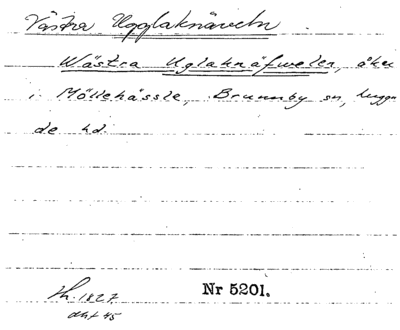 Västra Ugglaknäveln
Wästra Uglaknäfwelen, åker
i Möllehässle, Brunnby sn, Luggu
de hd.
Nr 5201.
1827